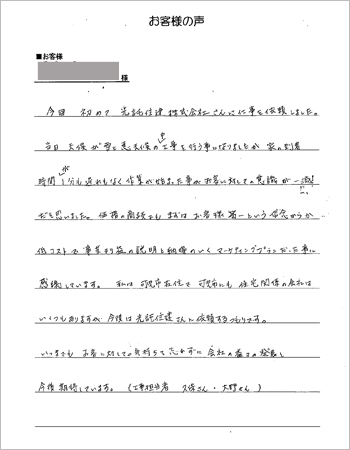 お客様の声
■お客様
様
今回 初めて 光託住建 株式会社さんに仕事を依頼しました。
当日 天候が雪と悪天候の中工事を行う事になりましたが 家の到着
時間1分も遅れもなく作業が始まった事がお客に対しての意識が一流
だと思いました。価格の面でもまずはお客様第一という
低コストで事業利益の説明と納得のいくマーケティングプランだった事に
感謝しています。 私は可児市在住で 可児市にも 住宅関係の会社は
いくつもありますが 今後は光託住建さんに依頼するつもりです。
いつまでも お客に対しての気持ちを忘れずに 会社の益々の発展と
今後期待しています。 (工事担当者 久保さん・大野さん)